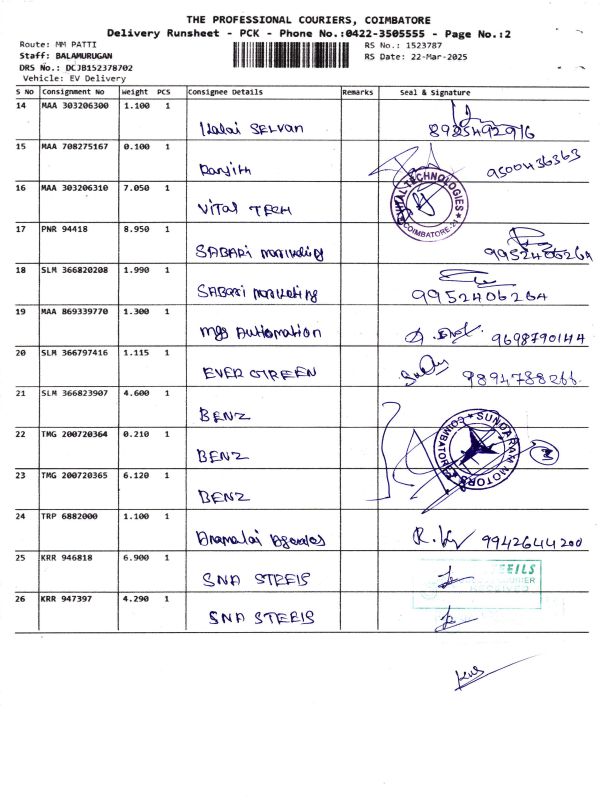 THE PROFESSIONAL COURIERS, COIMBATORE
Delivery Runsheet - PCK - Phone No.:0422-3505555 - Page No.:2
Route: MM PATTI
RS No.: 1523787
Staff: BALAMURUGAN
RS Date: 22-Mar-2025
DRS No.: DCJB152378702
Vehicle: EV Delivery
S No Consignment No Weight PCS Consignee Details Remarks Seal & Signature
14 MAA 303206300 1.100 1
SELVAN 8925492916
15 MAA 708275167 0.100 1
Ranjith 9500436363
16 MAA 303206310 7.050 1
VITAL TECH
VITAL TECHNOLOGIES
COIMBATORE-21
17 PNR 94418 8.950 1
SABARI marketing 9952406264
18 SLM 366820208 1.990 1
SABARI marketing 9952406264
19 MAA 869339770 1.300 1
mgs Automation 9698790144
20 SLM 366797416 1.115 1
EVER GREEN 9894788266
21 SLM 366823907 4.600 1
BENZ
SUNDARAM MOTORS
COIMBATORE
22 TMG 200720364 0.210 1
BENZ
23 TMG 200720365 6.120 1
BENZ
24 TRP 6882000 1.100 1
R. 9942644200
25 KRR 946818 6.900 1
SNA STEELS
26 KRR 947397 4.290 1
SNA STEELS